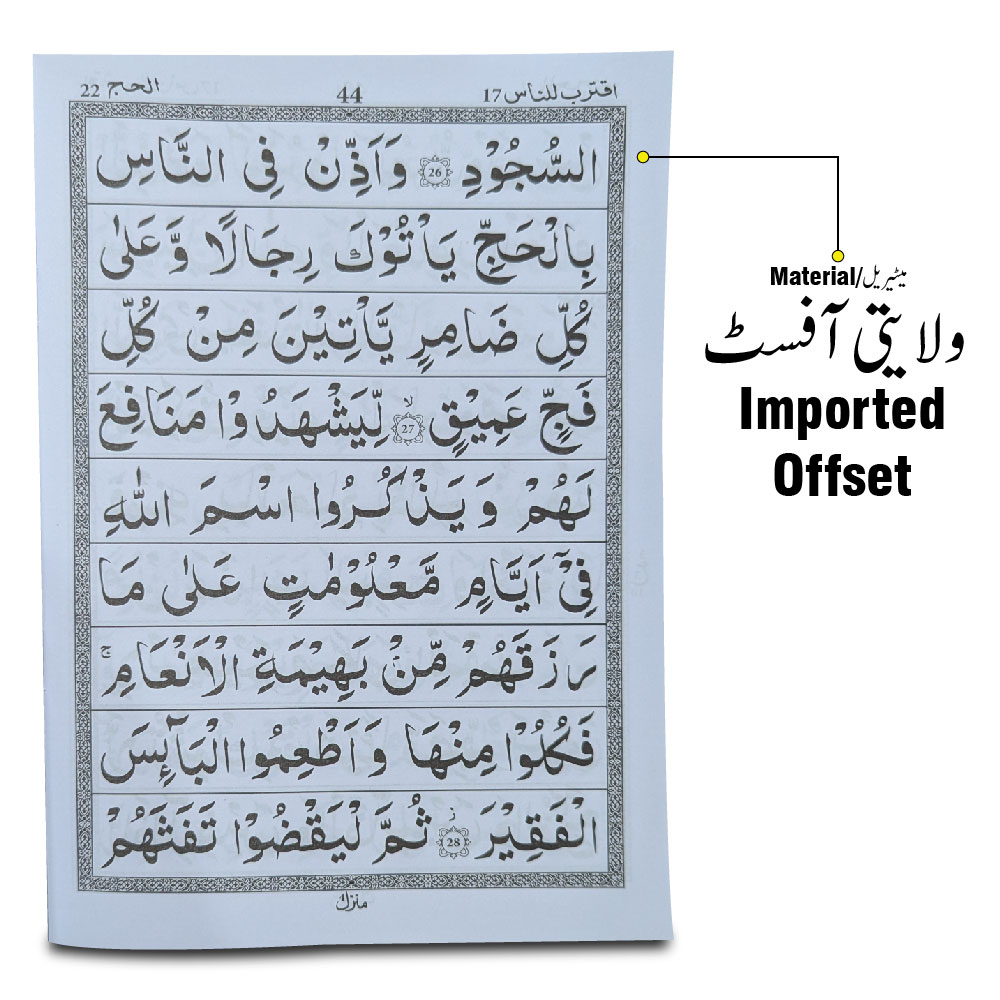 اقترب للناس 17 44 الحج 22
السُّجُوْدِ 26 وَاَذِّنْ فِی النَّاسِ
بِالْحَجِّ یَاْتُوْكَ رِجَالًا وَّعَلٰی
كُلِّ ضَامِرٍ یَّاْتِیْنَ مِنْ كُلِّ
فَجٍّ عَمِیْقٍ ۙ 27 لِّیَشْهَدُوْا مَنَافِعَ
لَهُمْ وَیَذْكُرُوا اسْمَ اللّٰهِ
فِیْۤ اَیَّامٍ مَّعْلُوْمٰتٍ عَلٰی مَا
رَزَقَهُمْ مِّنْۢ بَهِیْمَةِ الْاَنْعَامِ ۚ
فَكُلُوْا مِنْهَا وَاَطْعِمُوا الْبَآئِسَ
الْفَقِیْرَ ز 28 ثُمَّ لْیَقْضُوْا تَفَثَهُمْ
Material/میٹیریل
ولایتی آفسٹ
Imported
Offset